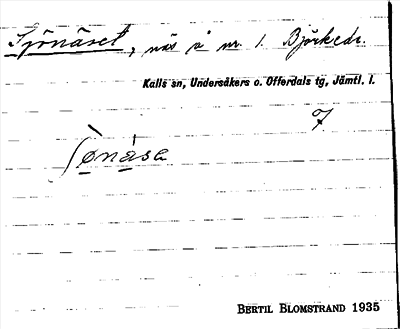 Sjönäset, näs å nr. 1. Björkede.
Kalls sn, Undersåkers o. Offerdals tg, Jämtl. l.
7
ʃønåsa
BERTIL BLOMSTRAND 1935